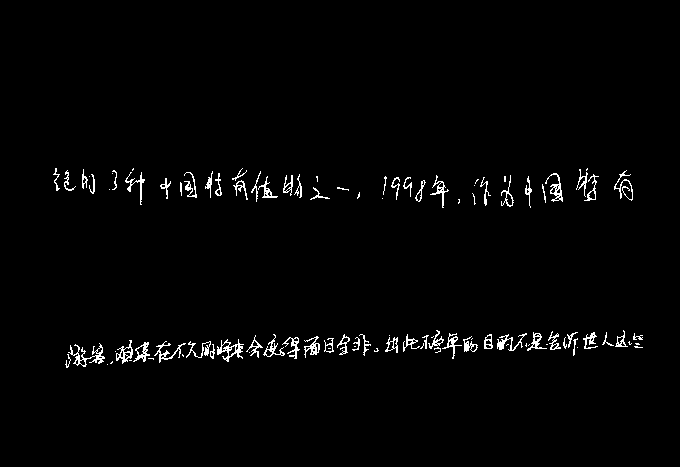 绝的3种中国特有植物之一,1998年,作为中国特有
游客,顾虑在不久的将来会变得面目全非。出此本年的目的不是告诉世人这些